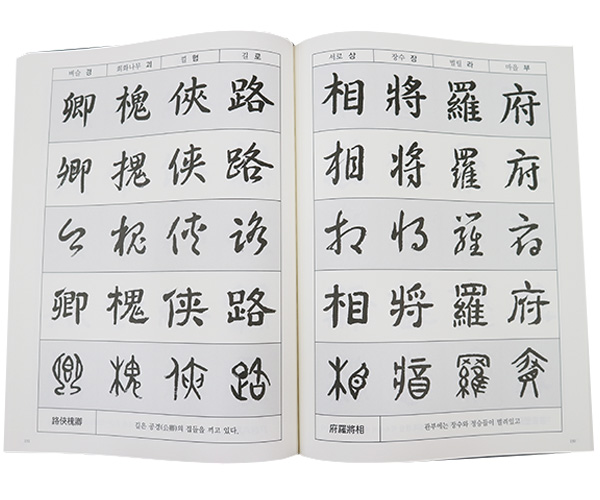 벼슬 경 회화나무 괴 낄 협 길 로
卿 槐 俠 路
卿 槐 俠 路
卿 槐 俠 路
卿 槐 俠 路
卿 槐 俠 路
路俠槐卿 길은 공경(公卿)의 집들을 끼고 있다.
서로 상 장수 장 벌릴 라 마을 부
相 將 羅 府
相 將 羅 府
相 將 羅 府
相 將 羅 府
相 將 羅 府
府羅將相 관부에는 장수와 정승들이 벌려있고